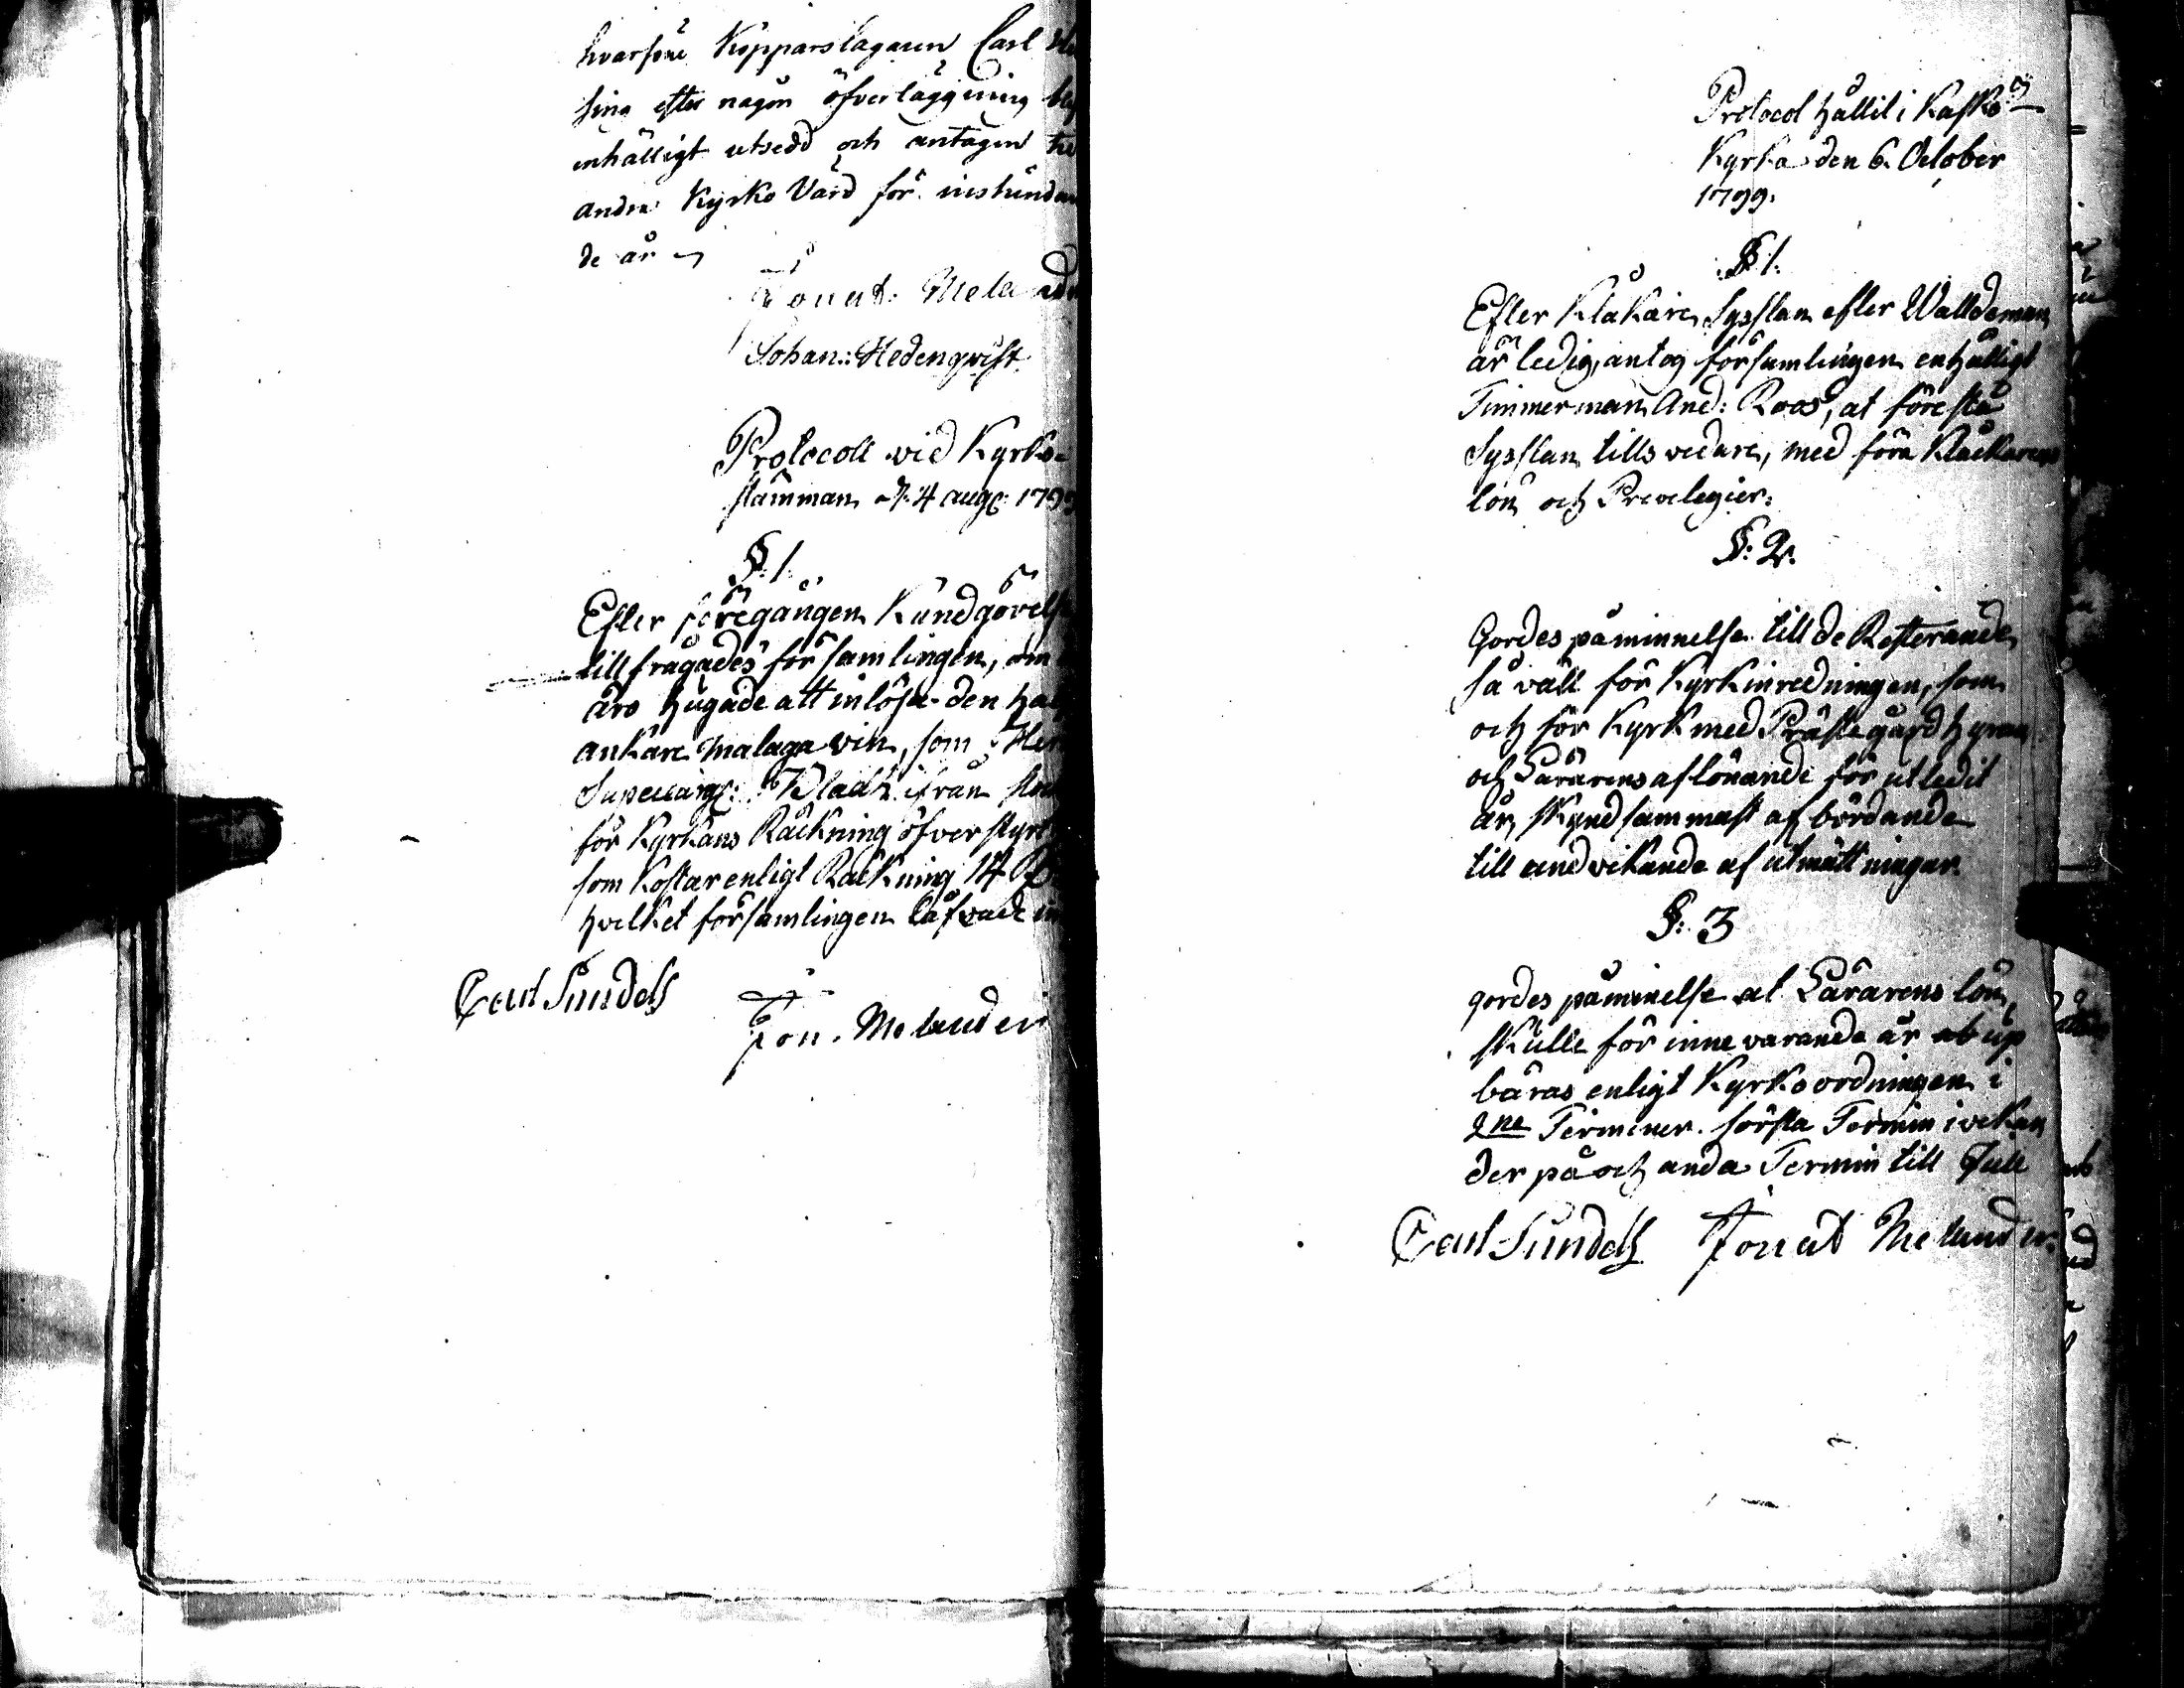 hvarföre Kopparslagaren Carl
sing efter någon öfverläggning
enhälligt utsedd och antagen
andra Kyrko Värd för instundan
de år
Jonat. Melander
Johan: Hedenqvist
Protocoll vid Kyrko-
stämman d. 4 aug: 1799
§. 1.
Efter föregången Kundgörelse
tillfrågades församlingen, om
äro hugade att inlösa den
ankare malaga vin, som Her
Supercarg: Bladh ifrån
för Kyrkans Räckning öfverstyrt
som kostar enligt Räckning 14 R
hvilket församlingen låfvade
Carl Sundels
Jon. Melander
Protocol hållit i Kaskö
Kyrka den 6. October
1799.
§ 1.
Efter Klåkare Sysslan efter Walldeman
är ledig, antog församlingen enhälligt
Timmerman And: Roos, at förestå
Sysslan tills vidare, med förra Klåckarens
lön och Previlegier.
§: 2.
Gordes påminnelse till de Resterande
så väll för Kyrkinredningen, som
och för Kyrk med Prästegård hyran
och Lärarens aflönande för utledit
år, skyndsammast afbördande
till undvikande af utmättningar.
§: 3
gordes påminelse at Lärarens lön,
skulle för innevarande år up
bäras enligt Kyrkoordningen i
2ne Terminer. första Termin i vekan
der på och anda Termin till Jull
Carl Sundels Jonat Melander.